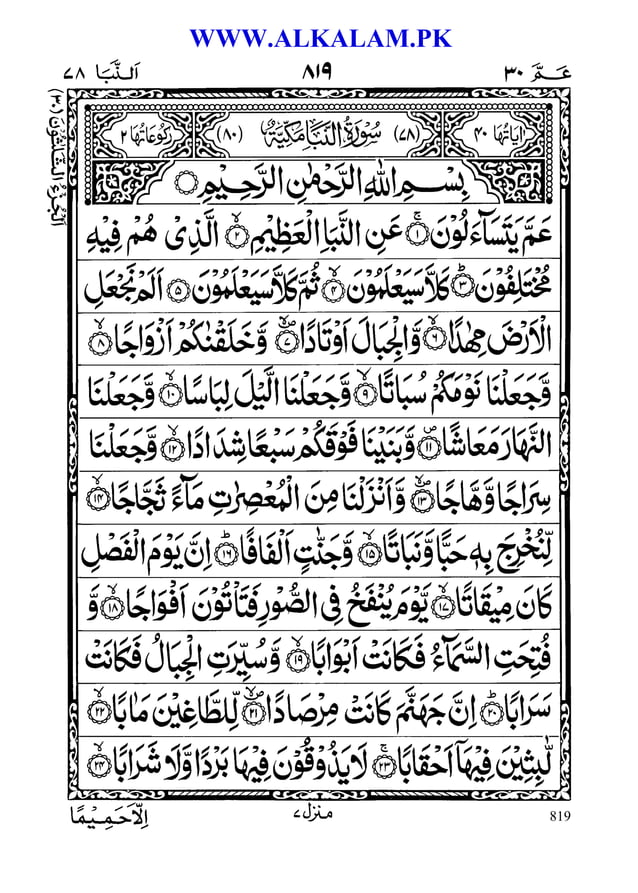 WWW.ALKALAM.PK
عـمّ ٣٠
٨١٩
اَلنَّبَا ٧٨
اٰيَاتُهَا ٤٠
(٧٨) سُوْرَةُ النَّبَاِ مَكِّيَّةٌ (٨٠)
رُكُوْعَاتُهَا ٢
بِسْمِ اللّٰهِ الرَّحْمٰنِ الرَّحِيْمِ ۝
عَمَّ يَتَسَآءَلُوْنَ ۝١ۚ عَنِ النَّبَاِ الْعَظِيْمِ ۝٢ۙ الَّذِىْ هُمْ فِيْهِ
مُخْتَلِفُوْنَ ۝٣ؕ كَلَّا سَيَعْلَمُوْنَ ۝٤ۙ ثُمَّ كَلَّا سَيَعْلَمُوْنَ ۝٥ اَلَمْ نَجْعَلِ
الْاَرْضَ مِهٰدًا ۝٦ۙ وَّالْجِبَالَ اَوْتَادًا ۝٧ۙ وَّخَلَقْنٰكُمْ اَزْوَاجًا ۝٨ۙ
وَّجَعَلْنَا نَوْمَكُمْ سُبَاتًا ۝٩ۙ وَّجَعَلْنَا الَّيْلَ لِبَاسًا ۝١٠ۙ وَّجَعَلْنَا
النَّهَارَ مَعَاشًا ۝١١ وَّبَنَيْنَا فَوْقَكُمْ سَبْعًا شِدَادًا ۝١٢ۙ وَّجَعَلْنَا
سِرَاجًا وَّهَّاجًا ۝١٣ وَّاَنْزَلْنَا مِنَ الْمُعْصِرٰتِ مَآءً ثَجَّاجًا ۝١٤ۙ
لِّنُخْرِجَ بِهٖ حَبًّا وَّنَبَاتًا ۝١٥ۙ وَّجَنّٰتٍ اَلْفَافًا ۝١٦ؕ اِنَّ يَوْمَ الْفَصْلِ
كَانَ مِيْقَاتًا ۝١٧ۙ يَّوْمَ يُنْفَخُ فِى الصُّوْرِ فَتَاْتُوْنَ اَفْوَاجًا ۝١٨ۙ وَّ
فُتِحَتِ السَّمَآءُ فَكَانَتْ اَبْوَابًا ۝١٩ۙ وَّسُيِّرَتِ الْجِبَالُ فَكَانَتْ
سَرَابًا ۝٢٠ؕ اِنَّ جَهَنَّمَ كَانَتْ مِرْصَادًا ۝٢١ لِّلطَّاغِيْنَ مَاٰبًا ۝٢٢ۙ
لّٰبِثِيْنَ فِيْهَاۤ اَحْقَابًا ۝٢٣ۚ لَا يَذُوْقُوْنَ فِيْهَا بَرْدًا وَّلَا شَرَابًا ۝٢٤ۙ
اِلَّا حَمِيْمًا
منزل ٧
819
الجزء الثلٰثون (٣٠)